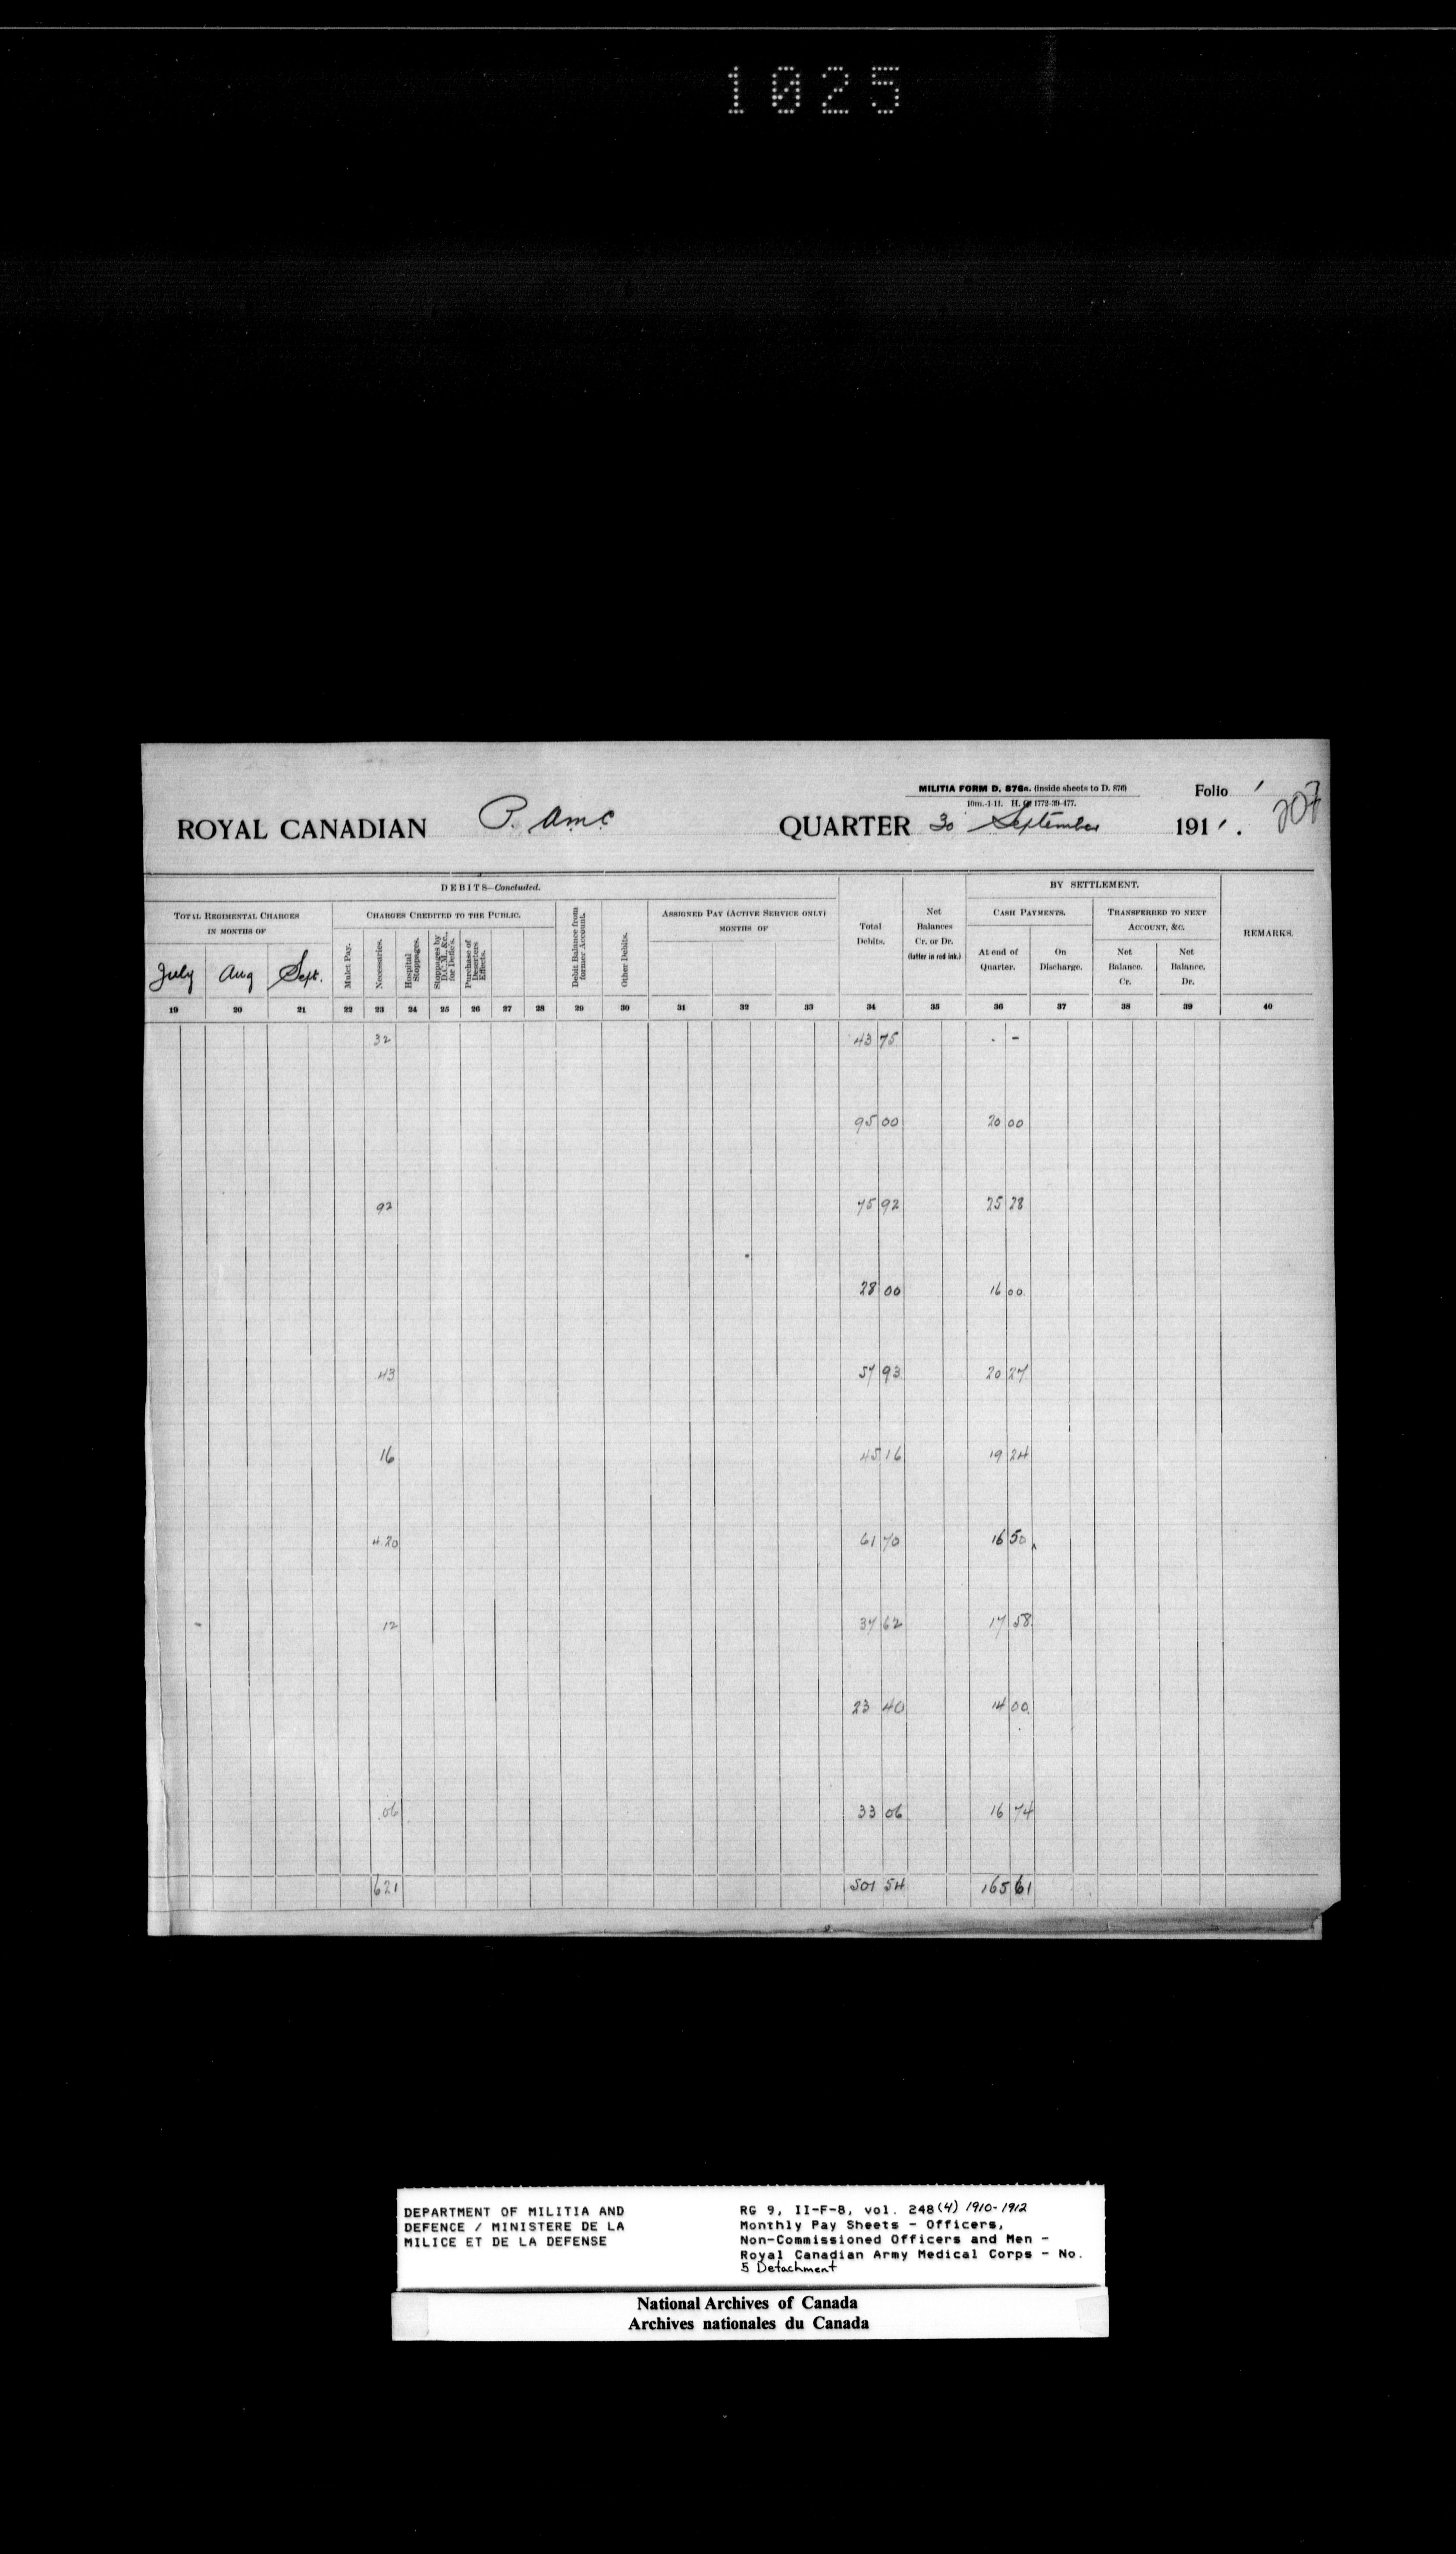 1025
MILITIA FORM D. 876a. (Inside sheets to D. 876)
10m.-1-11. H. Q. 1772-39-477.
Folio 1
207
ROYAL CANADIAN P. AMC QUARTER 30 September 1911.
DEBITS—Concluded.
BY SETTLEMENT.
TOTAL REGIMENTAL CHARGES
IN MONTHS OF
CHARGES CREDITED TO THE PUBLIC.
Debit Balance from former Account.
Other Debits.
ASSIGNED PAY (ACTIVE SERVICE ONLY)
MONTHS OF
Total Debits.
Net Balances Cr. or Dr. (latter in red ink.)
CASH PAYMENTS.
TRANSFERRED TO NEXT ACCOUNT, &C.
REMARKS.
July Aug Sept.
Mulct Pay. Necessaries. Hospital Stoppages. Stoppages by D.C.M., &c., for Defic's. Purchase of Deserters Effects.
At end of Quarter. On Discharge. Net Balance. Cr. Net Balance. Dr.
19 20 21 22 23 24 25 26 27 28 29 30 31 32 33 34 35 36 37 38 39 40
32 43 75 - -
95 00 20 00
92 75 92 25 28
28 00 16 00
43 57 93 20 27
16 45 16 19 24
4.20 61 70 16 50
- 12 37 62 17 58
23 40 14 00
.06 33 06 16 74
621 501 54 165 61
DEPARTMENT OF MILITIA AND
DEFENCE / MINISTERE DE LA
MILICE ET DE LA DEFENSE
RG 9, II-F-8, vol. 248 (4) 1910-1912
Monthly Pay Sheets - Officers,
Non-Commissioned Officers and Men -
Royal Canadian Army Medical Corps - No.
5 Detachment
National Archives of Canada
Archives nationales du Canada